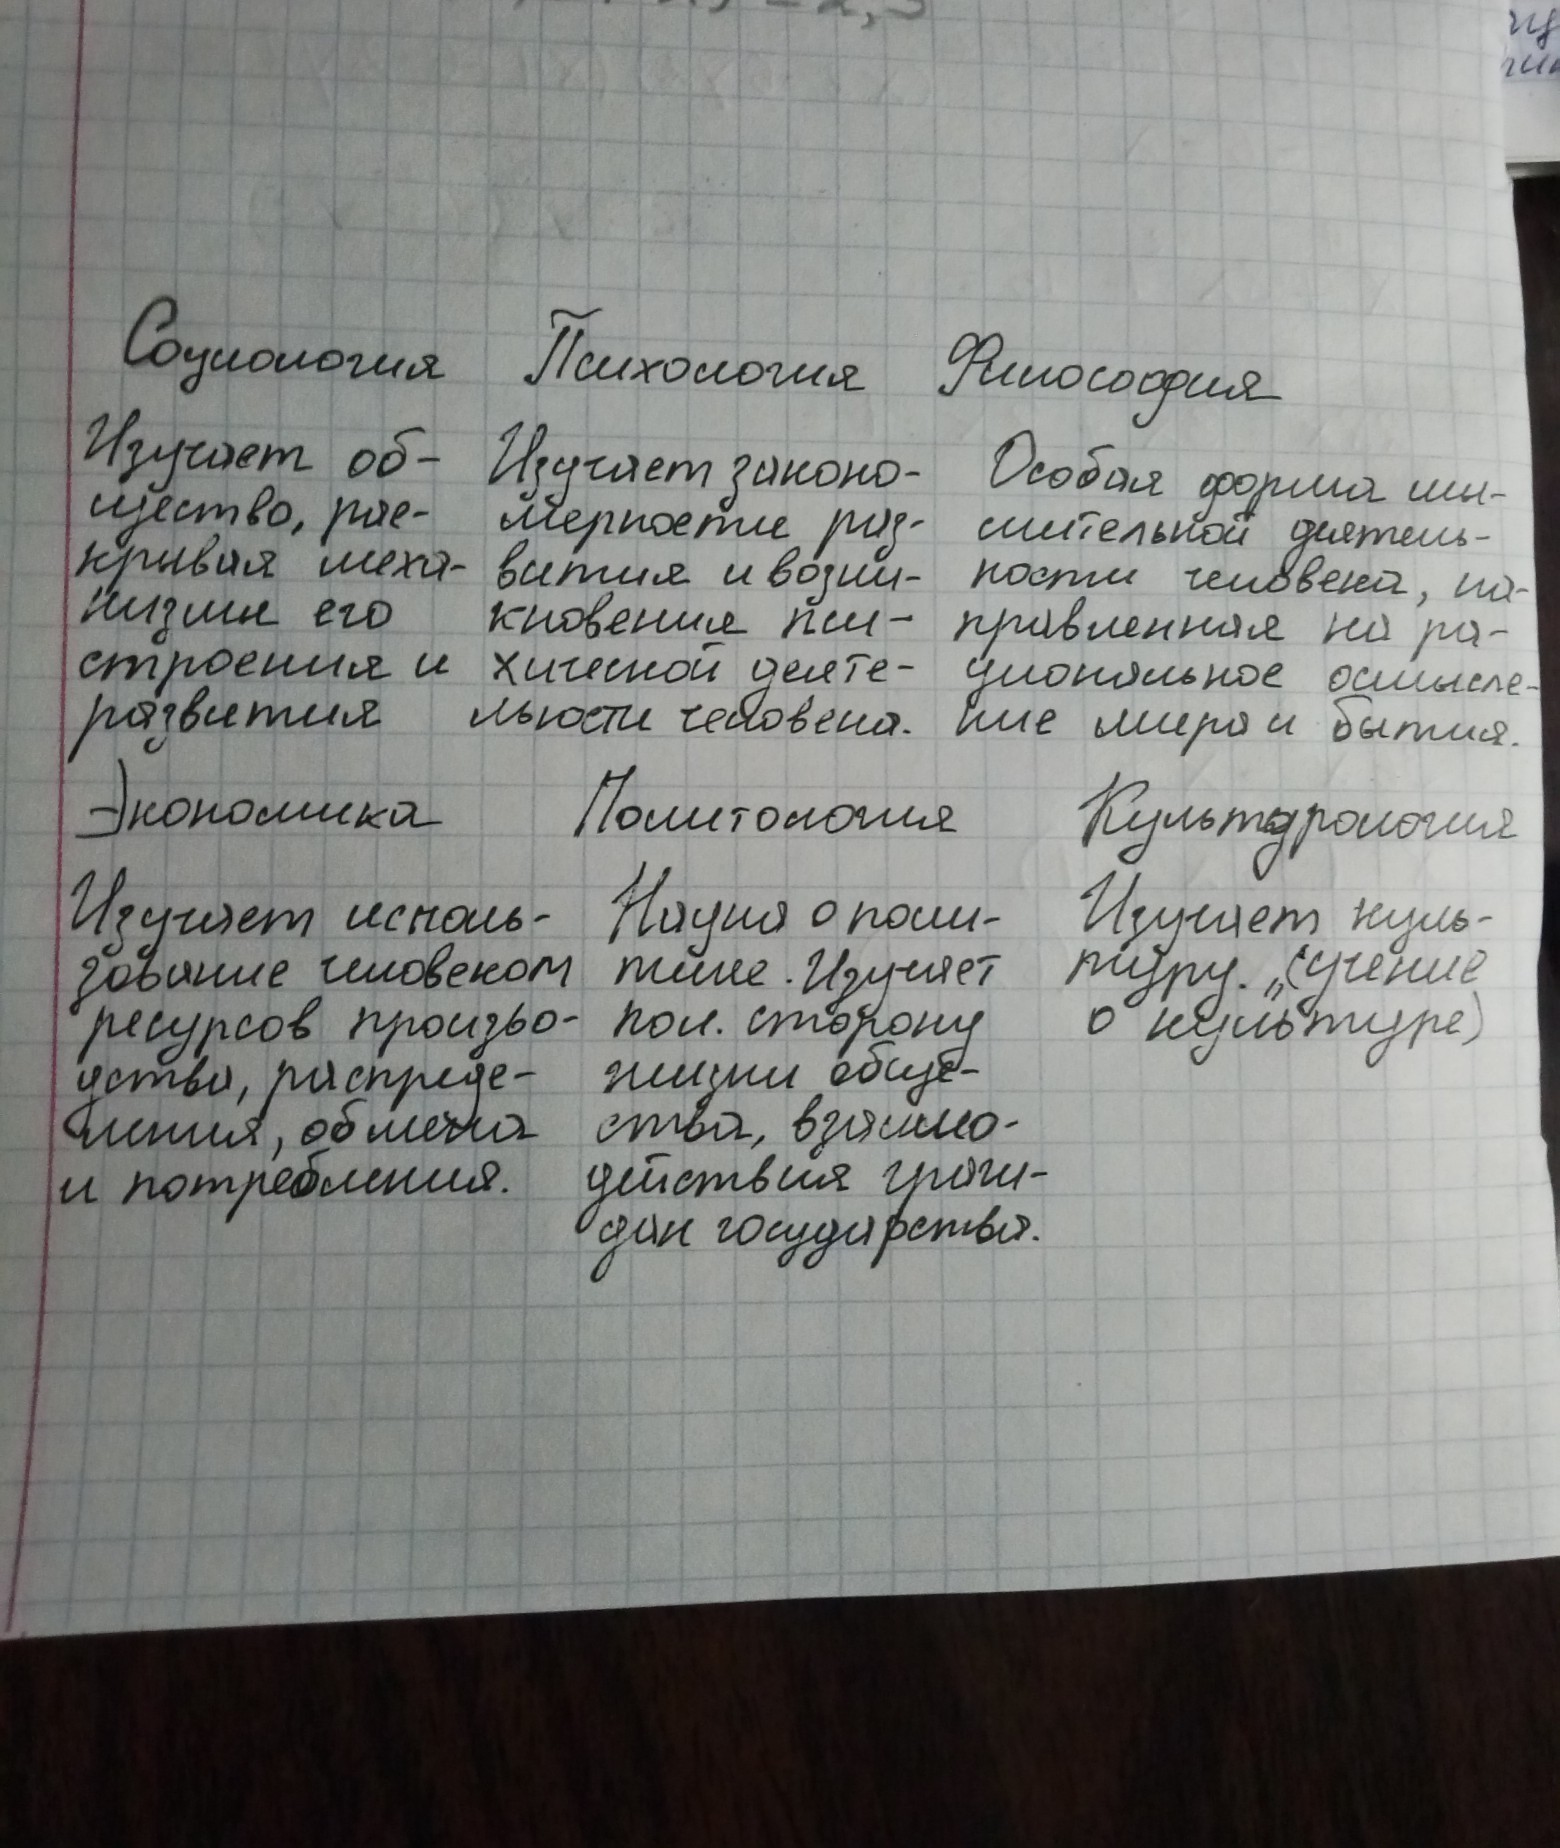 Социология
Изучает об-
щество, рас-
крывая меха-
низмы его
строения и
развития
Психология
Изучает законо-
мерности раз-
вития и возни-
кновения пси-
хической деяте-
льности человека.
Философия
Особая форма мы-
слительной деятель-
ности человека, на-
правленная на ра-
циональное осмысле-
ние мира и бытия.
Экономика
Изучает исполь-
зование человеком
ресурсов произво-
дства, распреде-
ления, обмена
и потребления.
Политология
Наука о поли-
тике. Изучает
пол. сторону
жизни общес-
ства, взаимо-
действия граж-
дан государства.
Культурология
Изучает куль-
туру. „(учение
о культуре)